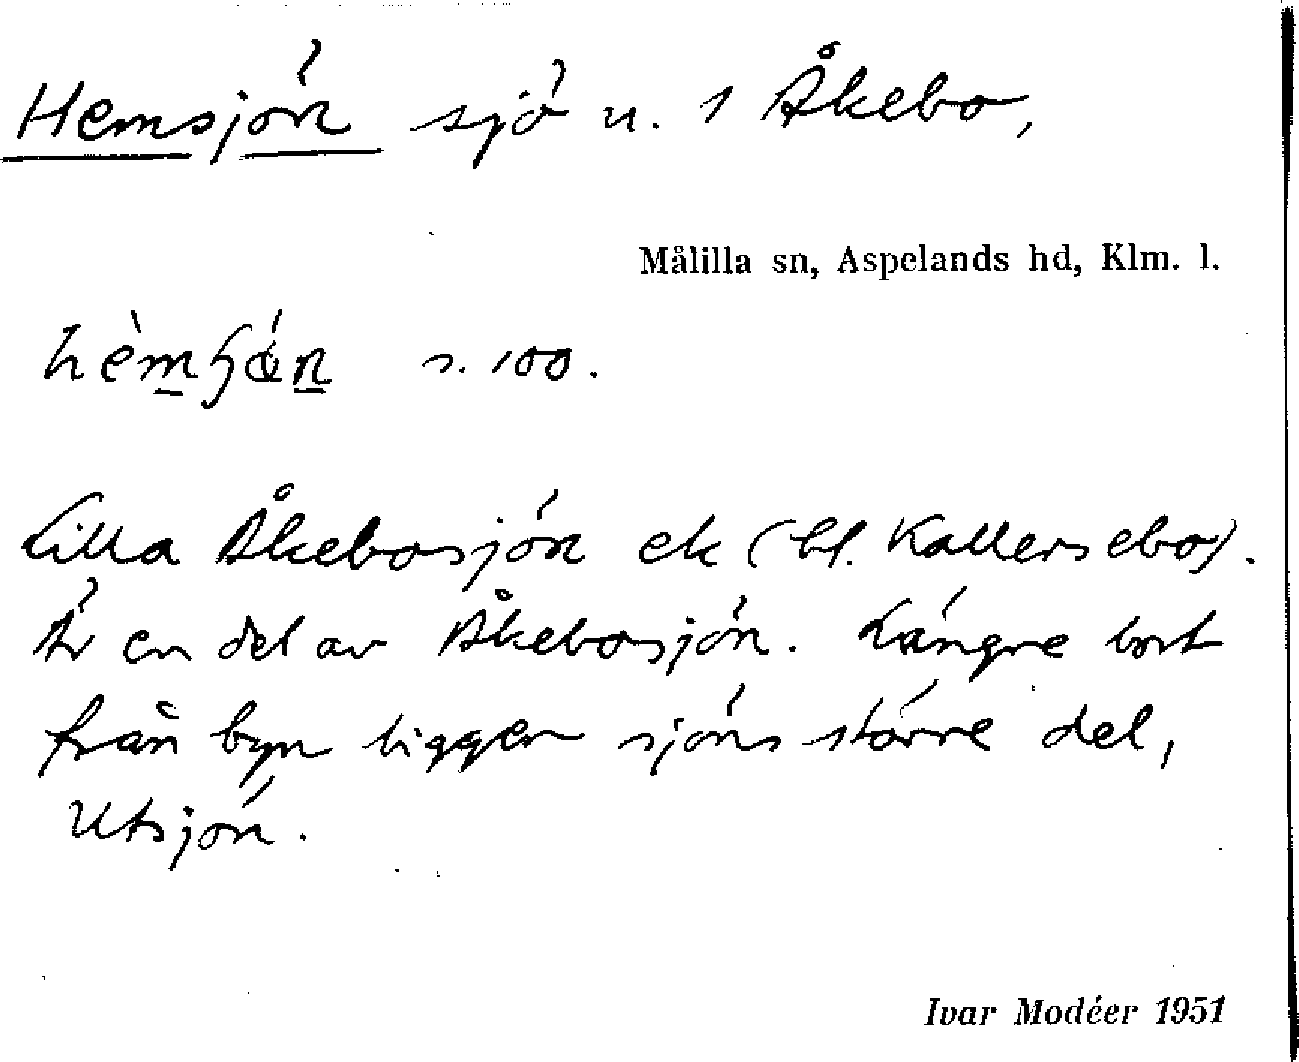 Hemsjön sjö u. 1 Åkebo,
Målilla sn, Aspelands hd, Klm. l.
s. 100.
Lilla Åkebosjön ek (bl. Kallersebo).
Är en del av Åkebosjön. Längre bort
från byn ligger sjöns större del,
Utsjön.
Ivar Modéer 1951